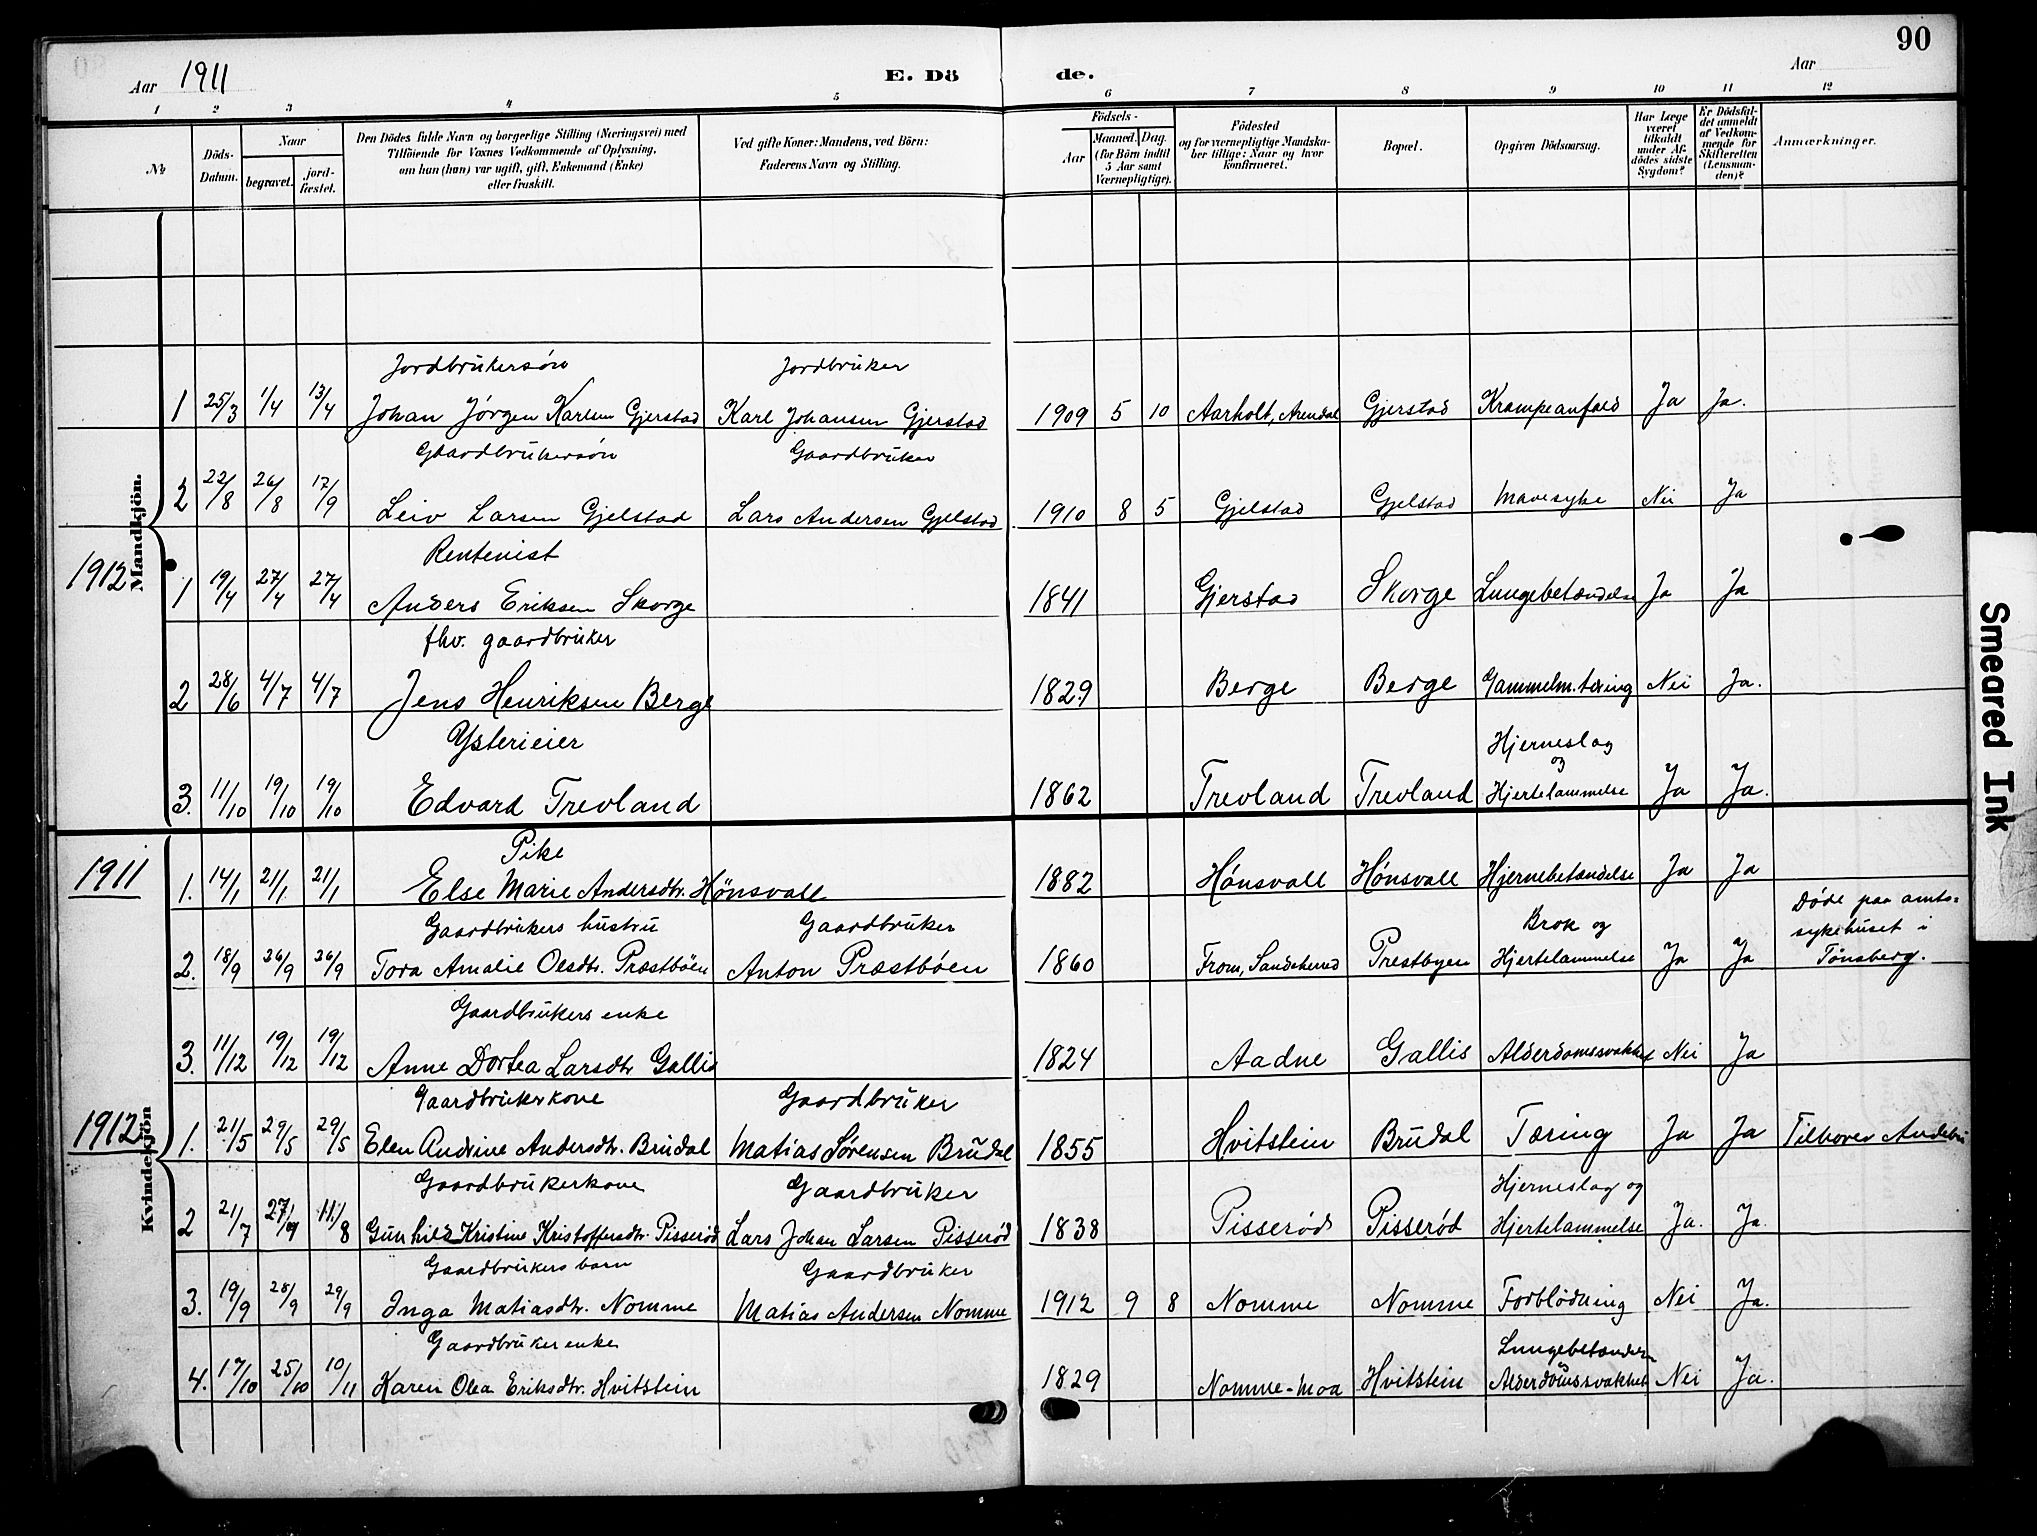 90
Aar 1911 E. Dö de. Aar
1 2 3 4 5 6 7 8 9 10 11 12
№ Döds-Datum. Naar begravet. jord-fæstet. Den Dödes fulde Navn og borgerlige Stilling (Næringsvei) med Tilföiende for Voxnes Vedkommende af Oplysning, om han (hun) var ugift, gift, Enkemand (Enke) eller fraskilt. Ved gifte Koner: Mandens, ved Börn: Faderens Navn og Stilling. Födsels- Aar Maaned. Dag. (for Börn indtil 5 Aar samt Værnepligtige). Födested og for værnepligtige Mandskaber tillige: Naar og hvor konfirmeret. Bopæl. Opgiven Dödsaarsag. Har Læge været tilkaldt under Afdödes sidste Sygdom? Er Dödsfaldet anmeldt af Vedkommende for Skifteretten (Lensmanden)? Anmærkninger.
Mandkjön.
Jordbrukersøn Jordbruker
1 25/3 1/4 13/4 Johan Jørgen Karlsen Gjerstad Karl Johansen Gjerstad 1909 5 10 Aarholt, Arendal Gjerstad Krampeanfald Ja Ja.
Gaardbrukersøn Gaardbruker
2 22/8 26/8 17/9 Leiv Larsen Gjelstad Lars Andersen Gjelstad 1910 8 5 Gjelstad Gjelstad Mavesyke Nei Ja
1912
Rentenist
1 19/4 27/4 27/4 Anders Eriksen Skorge 1841 Gjerstad Skorge Lungebetændelse Ja Ja
fhv. gaardbruker
2 28/6 4/7 4/7 Jens Henriksen Berge 1829 Berge Berge Gammelm.tæring Nei Ja.
Ysterieier Hjerneslag og
3. 11/10 19/10 19/10 Edvard Trevland 1862 Trevland Trevland Hjertelammelse Ja Ja.
Kvindekjön
1911
Pike
1. 14/1 21/1. 21/1 Else Marie Andersdtr. Hönsvall 1882 Hónsvall Hónsvall Hjernebetændelse Ja Ja
Gaardbrukers hustru Gaardbruker Brok og Døde paa amts=
sykehuset i
2. 18/9 26/9 26/9 Tora Amalie Olsdtr. Præstbøen Anton Præstbøen 1860 From, Sandeherred Prestbyen Hjertelammelse Ja Ja Tønsberg.
Gaardbrukers enke
3. 11/12 19/12 19/12 Anne Dortea Larsdtr Gallis 1824 Aadne Gallis Alderdomssvakhet Nei Ja
1912
Gaardbrukerkone Gaardbruker
1. 21/5 29/5 29/5 Elen Andrine Andersdtr. Brudal Matias Sørensen Brudal 1855 Hvitstein Brudal Tæring Ja Ja Tilhører Andebu
Gaardbrukerkone Gaardbruker Hjerneslag og
2 21/7 27/ 11/8 Gunhild Kristine Kristoffersdtr. Pisserød Lars Johan Larsen Pisserød 1838 Pisserød Pisserød Hjertelammelse Ja. Ja.
Gaardbrukers barn Gaardbruker
3. 19/9 28/9 29/9 Inga Matiasdtr. Nomme Matias Andersen Nomme 1912 9 8 Nomme Nomme Forblödning Nei Ja.
Gaardbrukerenke Lungebetændelse
4. 17/10 25/10 10/11 Karen Olea Eriksdtr. Hvitstein 1829 Nomme-moa Hvitstein Alderdomssvakhet Nei Ja.
Smeared Ink